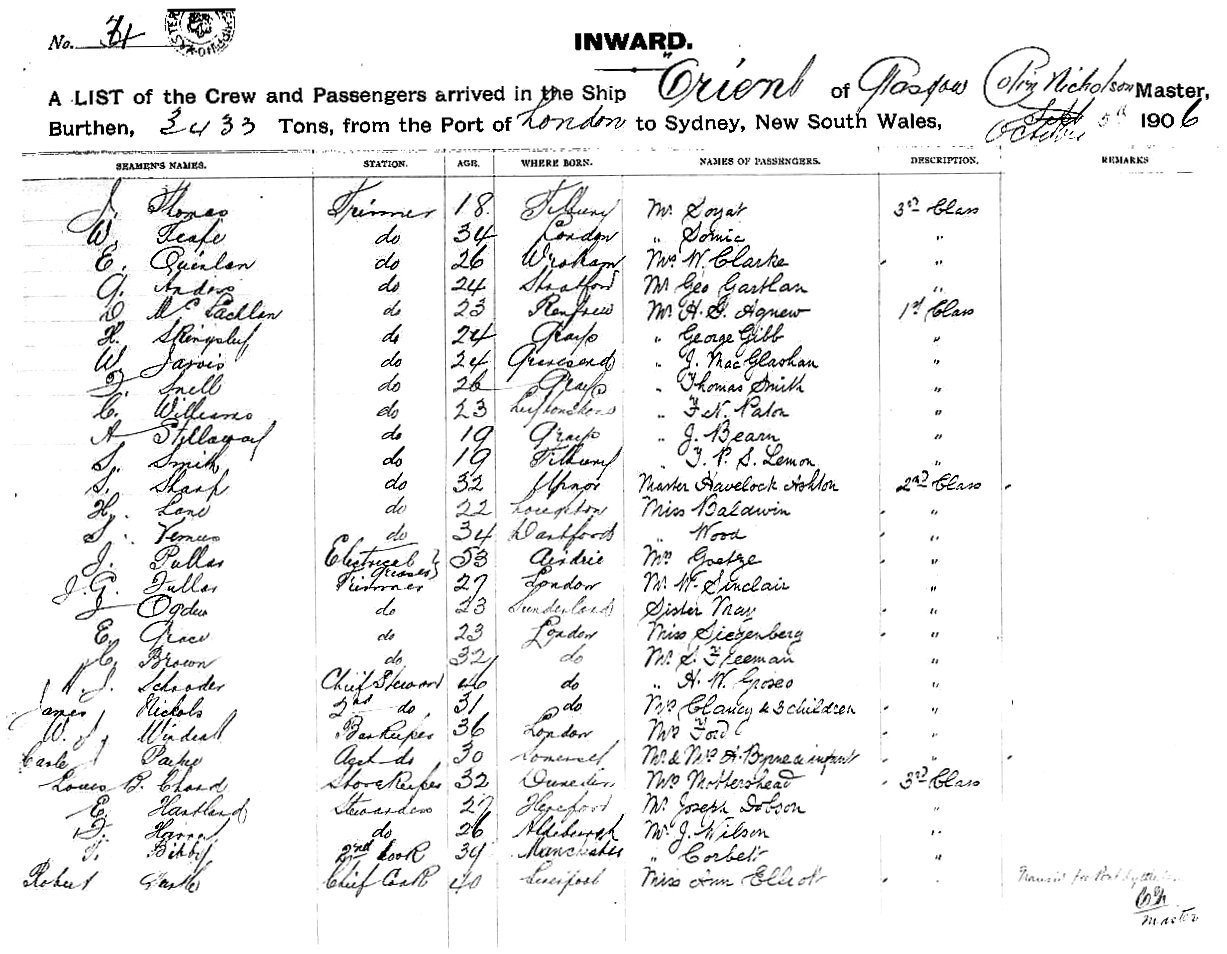 No. 71
INWARD.
A LIST of the Crew and Passengers arrived in the Ship "Orient of Glasgow Colin Nicholson Master,
Burthen, 3433 Tons, from the Port of London to Sydney, New South Wales, October 5th 1906
SEAMEN'S NAMES. STATION. AGE. WHERE BORN. NAMES OF PASSENGERS. DESCRIPTION. REMARKS
J. Thomas Trimmer 18 Tilbury Mr 3rd Class
W. do 34 London " "
E. Quinlan do 26 Mrs W. Clarke "
G. do 24 Stratford Mr Geo "
D McLachlan do 23 Renfrew Mr H. G. Agnew 1st Class
H. do 24 Grays " George Gibb "
W. Jarvis do 24 Gravesend " J. MacGlashan "
Snell do 26 Grays " Thomas Smith "
C. Williams do 23 " F. N. Paton "
A Stillaway do 19 Grays " J. Bearn "
S. Smith do 19 Tilbury " T. P. S. Lemon "
S. Sharp do 32 Upnor Master Havelock Ashton 2nd Class
H. Lane do 22 Miss Baldwin "
do 34 Dartford " Wood "
J. Pullar Electrical Greaser 53 Airdrie "
J. G. Trimmer 27 London Mr W. Sinclair "
J Ogden do 23 Sunderland Sister May "
E. Grace do 23 London Miss Siegenberg "
C. Brown do 32 do Mr S. Freeman "
J. Schroder Chief Steward 46 do " H. W. "
James Nickols 2nd do 31 do Mrs Clancy & 3 children "
W. J. Barkeeper 36 London Mrs Ford "
Asst do 30 Somerset Mr & Mrs A. Byrne & infant "
Louis B. Chard Storekeeper 32 Dunedin Mrs Mottershead 3rd Class
E. Hartland Stewardess 27 Hereford Mr Joseph Dobson "
do 26 Aldeburgh Mr J. Wilson "
T. Bibby 2nd Cook 34 Manchester " Corbett "
Robert Chief Cook 40 Liverpool Miss Ann Elliott "
CN
Master